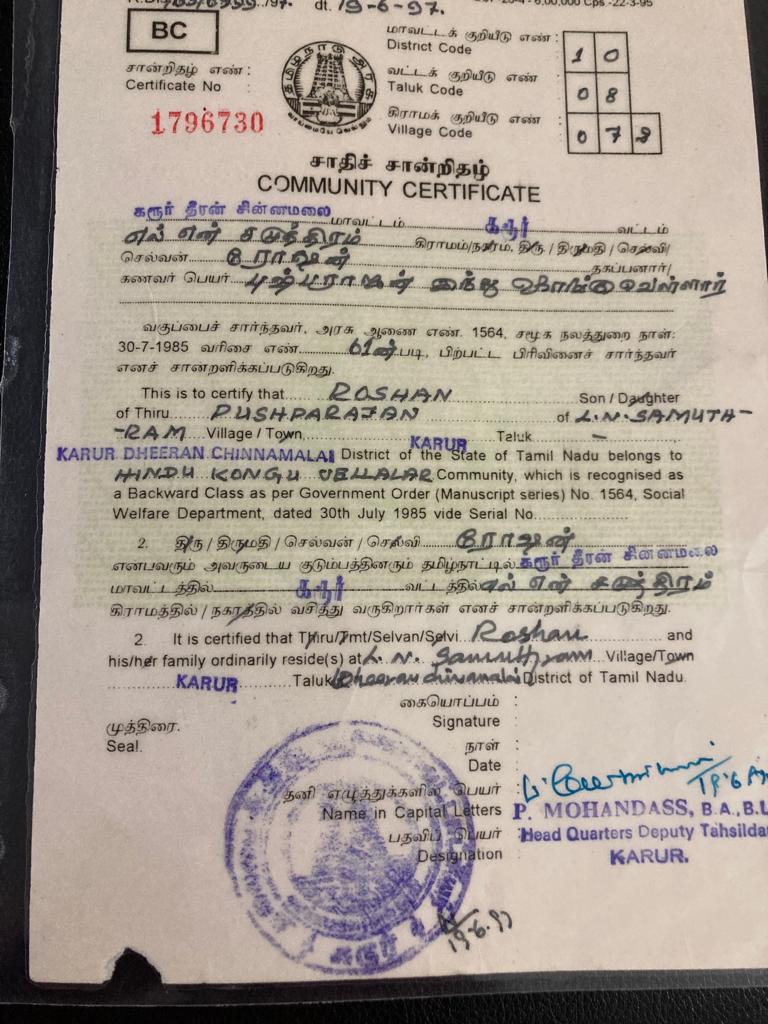 dt. 19-6-97.
6,00,000 Cps -22-3-95
BC
சான்றிதழ் எண் :
Certificate No
1796730
தமிழ்நாடு அரசு
வாய்மையே வெல்லும்
மாவட்டக் குறியீடு எண் :
District Code
1 0
வட்டக் குறியீடு எண்
Taluk Code
0 8
கிராமக் குறியீடு எண்
Village Code
0 7
சாதிச் சான்றிதழ்
COMMUNITY CERTIFICATE
கரூர் தீரன் சின்னமலை மாவட்டம் கரூர் வட்டம்
எல் என் சமுத்திரம் கிராமம்/நகரம், திரு / திருமதி / செல்வி/
செல்வன் ரோஷன் தகப்பனார்/
கணவர் பெயர் புஷ்பராஜன் இந்து கொங்கு வெள்ளாளர்
வகுப்பைச் சார்ந்தவர், அரசு ஆணை எண். 1564, சமூக நலத்துறை நாள்:
30-7-1985 வரிசை எண் 61ன் படி, பிற்பட்ட பிரிவினைச் சார்ந்தவர்
எனச் சான்றளிக்கப்படுகிறது.
This is to certify that ROSHAN Son / Daughter
of Thiru PUSHPARAJAN of L.N. SAMUTH-
-RAM Village / Town, KARUR Taluk -
KARUR DHEERAN CHINNAMALAI District of the State of Tamil Nadu belongs to
HINDU KONGU VELLALAR Community, which is recognised as
a Backward Class as per Government Order (Manuscript series) No. 1564, Social
Welfare Department, dated 30th July 1985 vide Serial No.
2. திரு / திருமதி / செல்வன் / செல்வி ரோஷன்
என்பவரும் அவருடைய குடும்பத்தினரும் தமிழ்நாட்டில் கரூர் தீரன் சின்னமலை
மாவட்டத்தில் கரூர் வட்டத்தில் எல் என் சமுத்திரம்
கிராமத்தில் / நகரத்தில் வசித்து வருகிறார்கள் எனச் சான்றளிக்கப்படுகிறது.
2. It is certified that Thiru/Tmt/Selvan/Selvi Roshan and
his/her family ordinarily reside(s) at L. N. Samuthram Village/Town
KARUR Taluk Dheeran chinnamalai District of Tamil Nadu.
கையொப்பம் :
முத்திரை. Signature :
Seal. நாள் :
Date :
தனி எழுத்துக்களில் பெயர் :
Name in Capital Letters P. MOHANDASS, B.A.,B.L
பதவிப் பெயர் :
Designation Head Quarters Deputy Tahsildar
KARUR.
கரூர்
19.6.97